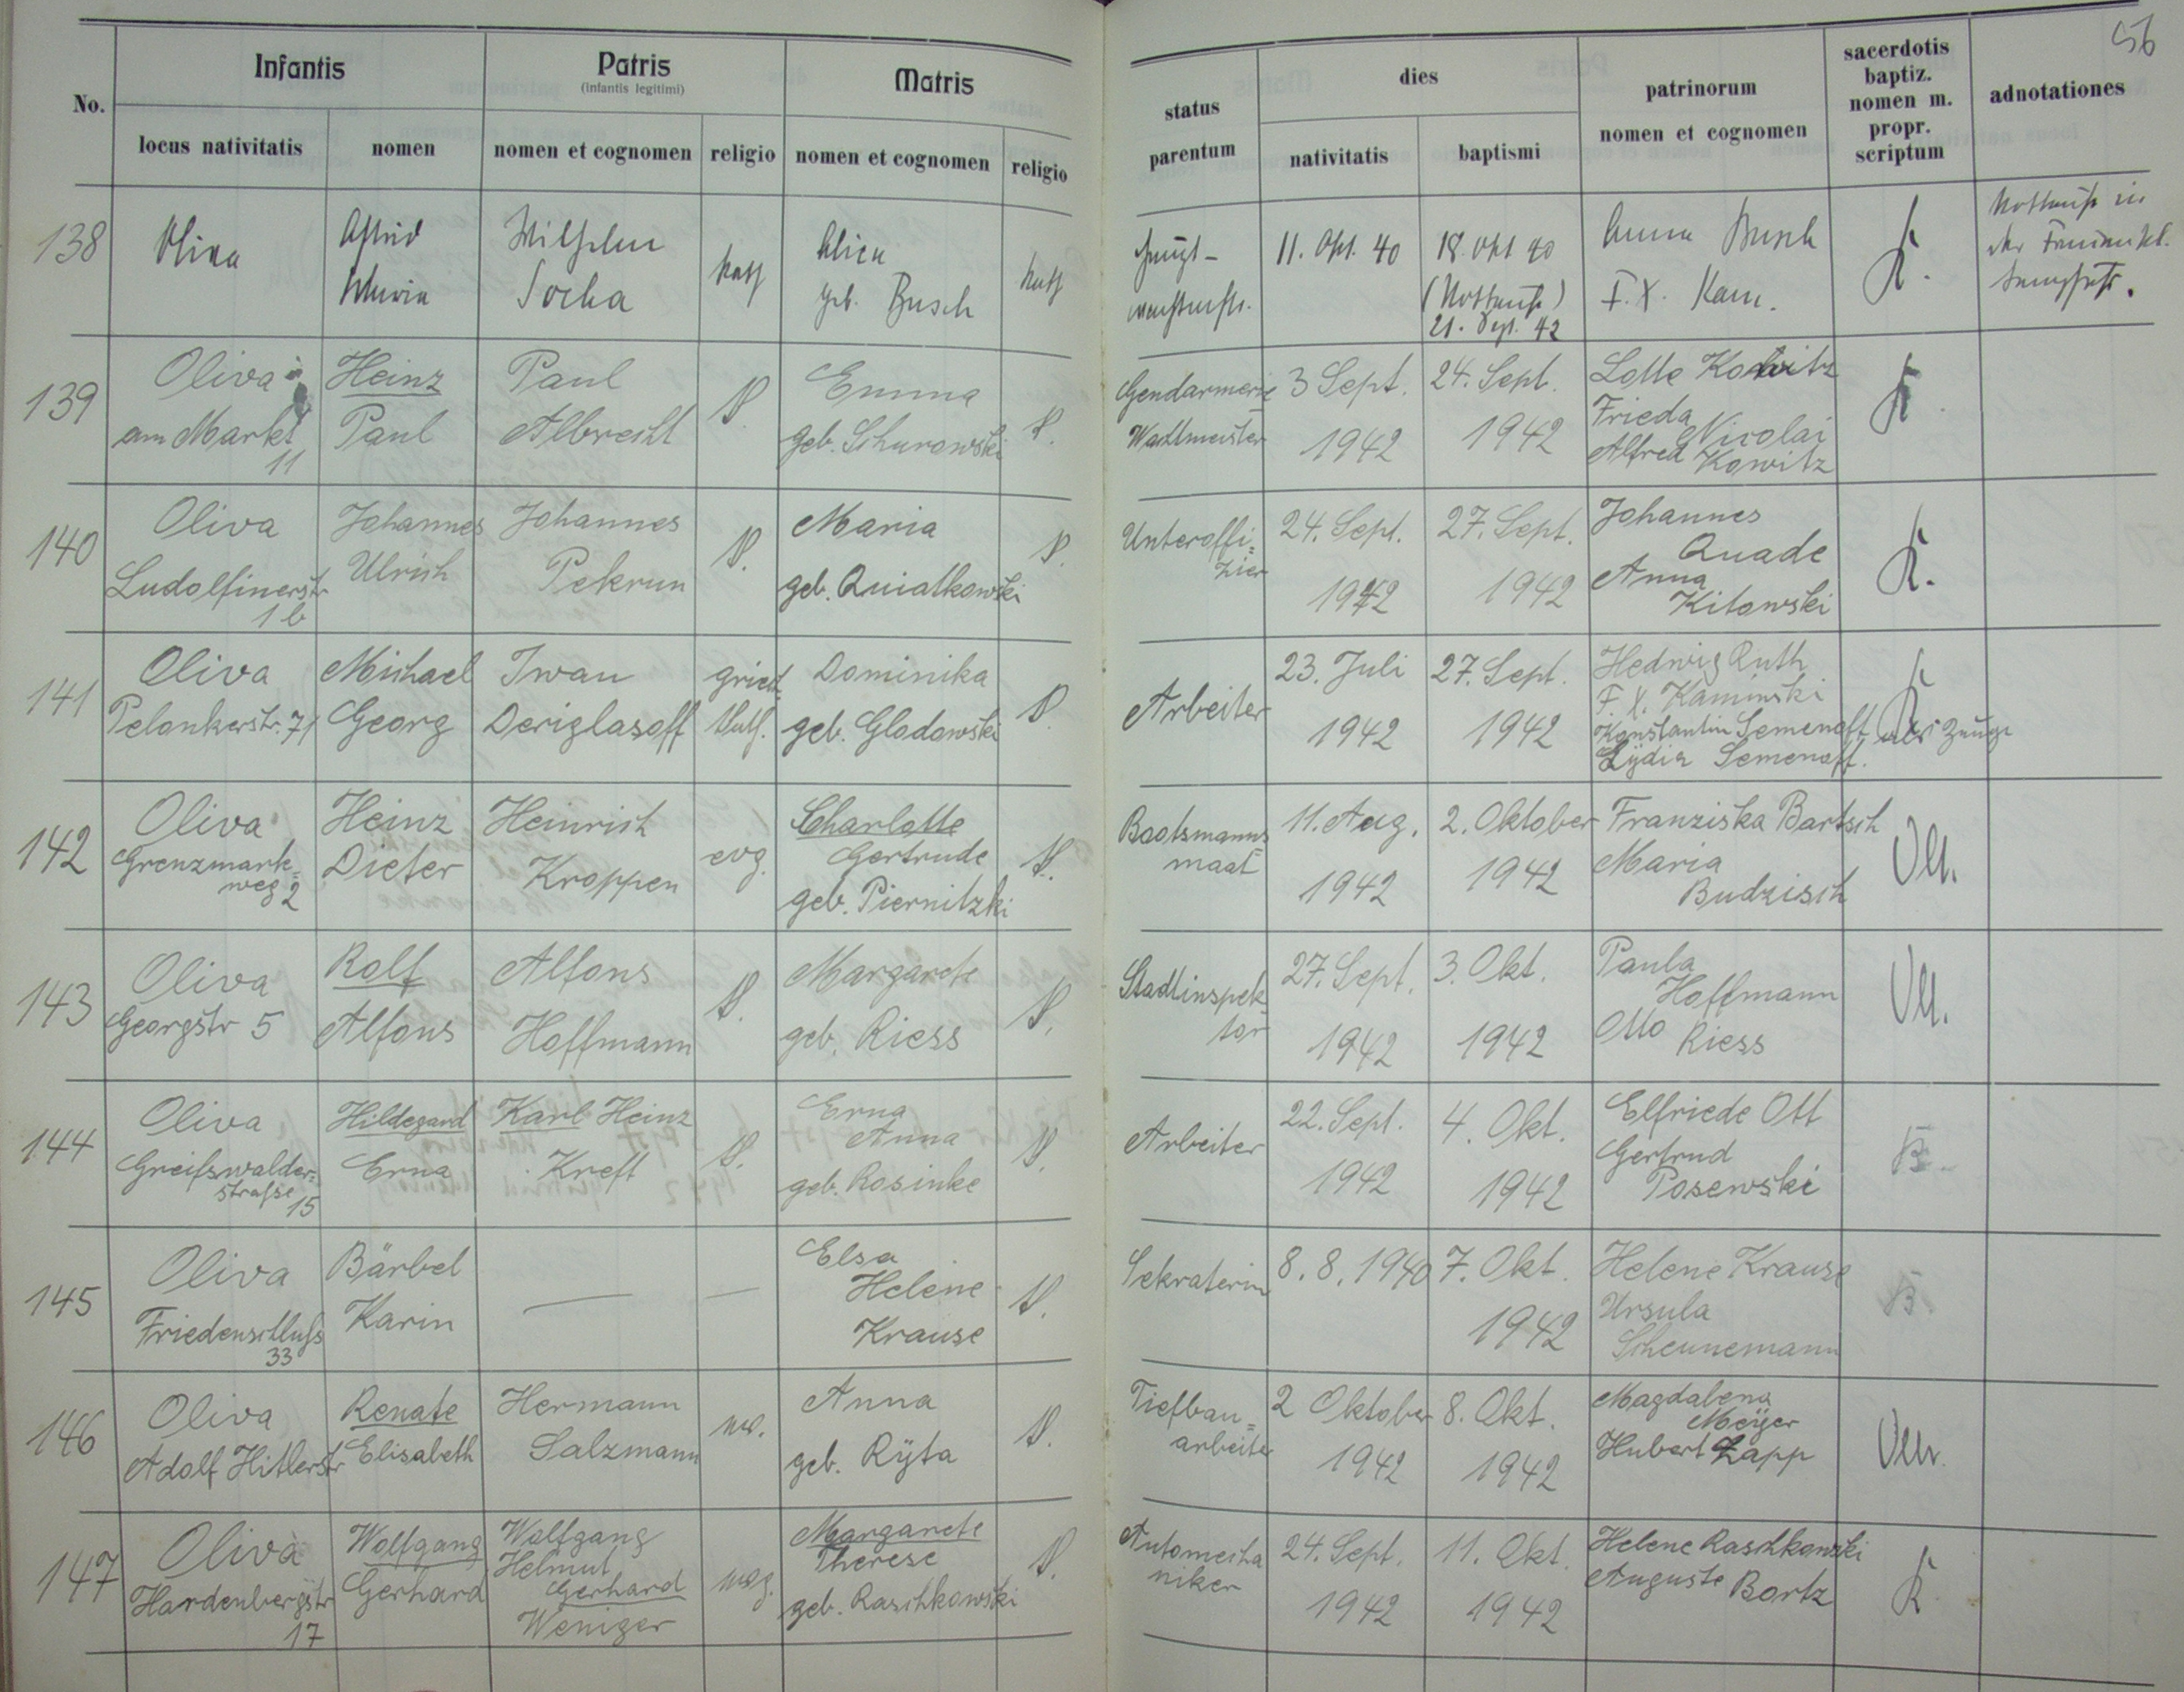 56
No.
Infantis
locus nativitatis
nomen
Patris
(infantis legitimi)
nomen et cognomen
religio
Matris
nomen et cognomen
religio
status
parentum
dies
nativitatis
baptismi
patrinorum
nomen et cognomen
sacerdotis
baptiz.
nomen m.
propr.
scriptum
adnotationes
138
Oliva
Astrid
Maria
Wilhelm
Socha
kath
Alice
geb. Busch
kath
11. Okt. 40
18. Okt 40
(Nottaufe)
21. Sept. 42
Anna Busch
F. X. Kam.
K.
Nottaufe in
der
139
Oliva
am Markt
11
Heinz
Paul
Paul
Albrecht
k.
Emma
geb. Schurowski
k.
Gendarmerie
Wachtmeister
3 Sept.
1942
24. Sept.
1942
Lotte Kowitz
Frieda
Nicolai
Alfred Kowitz
K.
140
Oliva
Ludolfinerstr
1b
Johannes
Ulrich
Johannes
Pekrun
k.
Maria
geb. Quiatkowski
k.
Unteroffi=
zier
24. Sept.
1942
27. Sept.
1942
Johannes
Quade
Anna
Kitowski
K.
141
Oliva
Pelonkerstr. 71
Michael
Georg
Iwan
Deriglasoff
griech.
kath.
Dominika
geb. Glodowski
k.
Arbeiter
23. Juli
1942
27. Sept.
1942
Hedwig Ruth
F. X. Kaminski
Konstantin Semenoff
Lydia Semenoff.
K
als Zeuge
142
Oliva
Grenzmark=
weg 2
Heinz
Dieter
Heinrich
Kroppen
evg.
Charlotte
Gertrude
geb. Piernitzki
k.
Bootsmanns=
maat
11. Aug.
1942
2. Oktober
1942
Franziska Bartsch
Maria
Budzisch
143
Oliva
Georgstr 5
Rolf
Alfons
Alfons
Hoffmann
k.
Margarete
geb. Riess
k.
Stadtinspek=
tor
27. Sept.
1942
3. Okt.
1942
Paula
Hoffmann
Otto Riess
144
Oliva
Greifswalder=
strafse
15
Hildegard
Erna
Karl Heinz
Kreft
k.
Erna
Anna
geb. Rosinke
k.
Arbeiter
22. Sept.
1942
4. Okt.
1942
Elfriede Ott
Gertrud
Posewski
B.
145
Oliva
Friedensschlufs
33
Bärbel
Karin
—
—
Elsa
Helene
Krause
k.
Sekraterin
8. 8. 1940
7. Okt.
1942
Helene Krause
Ursula
Scheunemann
B.
146
Oliva
Adolf Hitlerstr
Renate
Elisabeth
Hermann
Salzmann
Anna
geb. Rÿta
k.
Tiefbau=
arbeiter
2 Oktober
1942
8. Okt.
1942
Magdalena
Meÿer
Hubert Zapp
147
Oliva
Hardenbergstr
17
Wolfgang
Gerhard
Wolfgang
Helmut
Gerhard
Weniger
Margarete
Therese
geb. Raschkowski
k.
Automecha
niker
24. Sept.
1942
11. Okt.
1942
Helene Raschkowski
Auguste Bortz
K